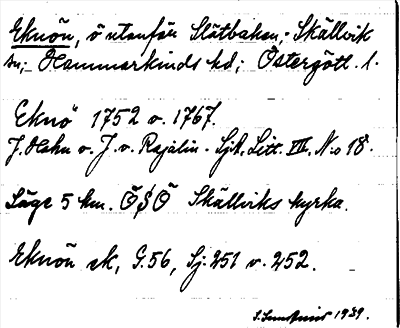 Eknön, ö utanför Slätbaken, Skällvik
sn; Hammarkinds hd; Östergötl. l.
Eknö 1752 o. 1767.
J. Hahn o. J. v. Rajalin - Sjk. Litt. III, N:o 18.
Läge 5 km. Ö$Ö Skällviks kyrka.
Eknön ek, G.56, Sj: 251 o. 252.
1939.